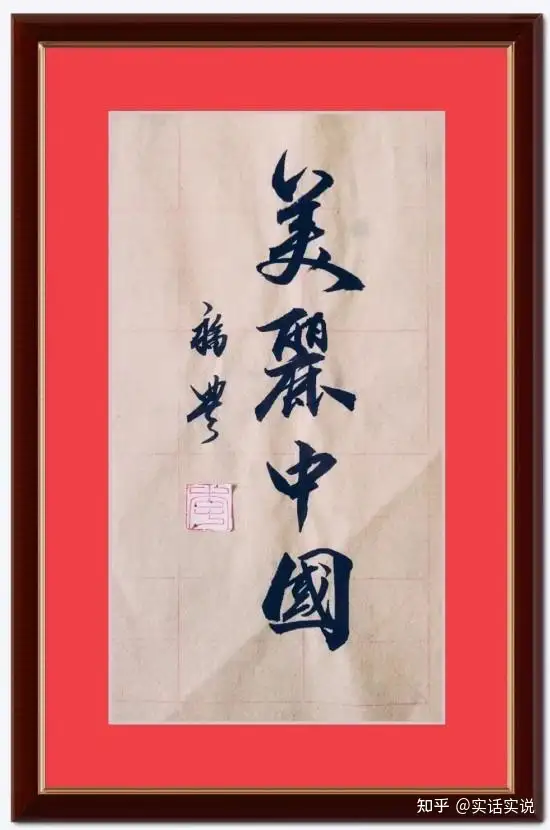 美麗中國
知乎 @实话实说